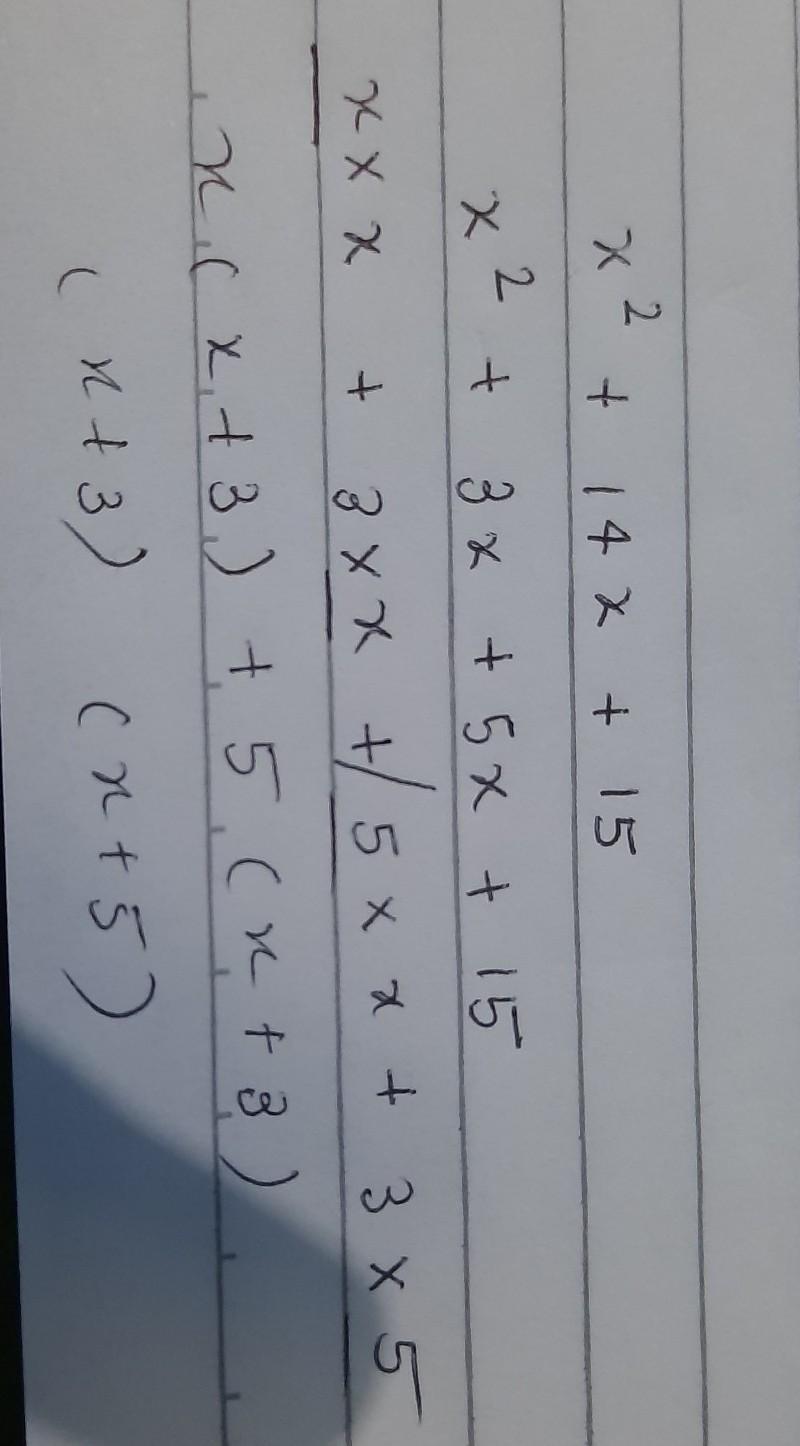 x² + 14x + 15
x² + 3x + 5x + 15
x × x + 3 × x +/ 5 × x + 3 × 5
x (x + 3) + 5 (x + 3)
(x + 3) (x + 5)